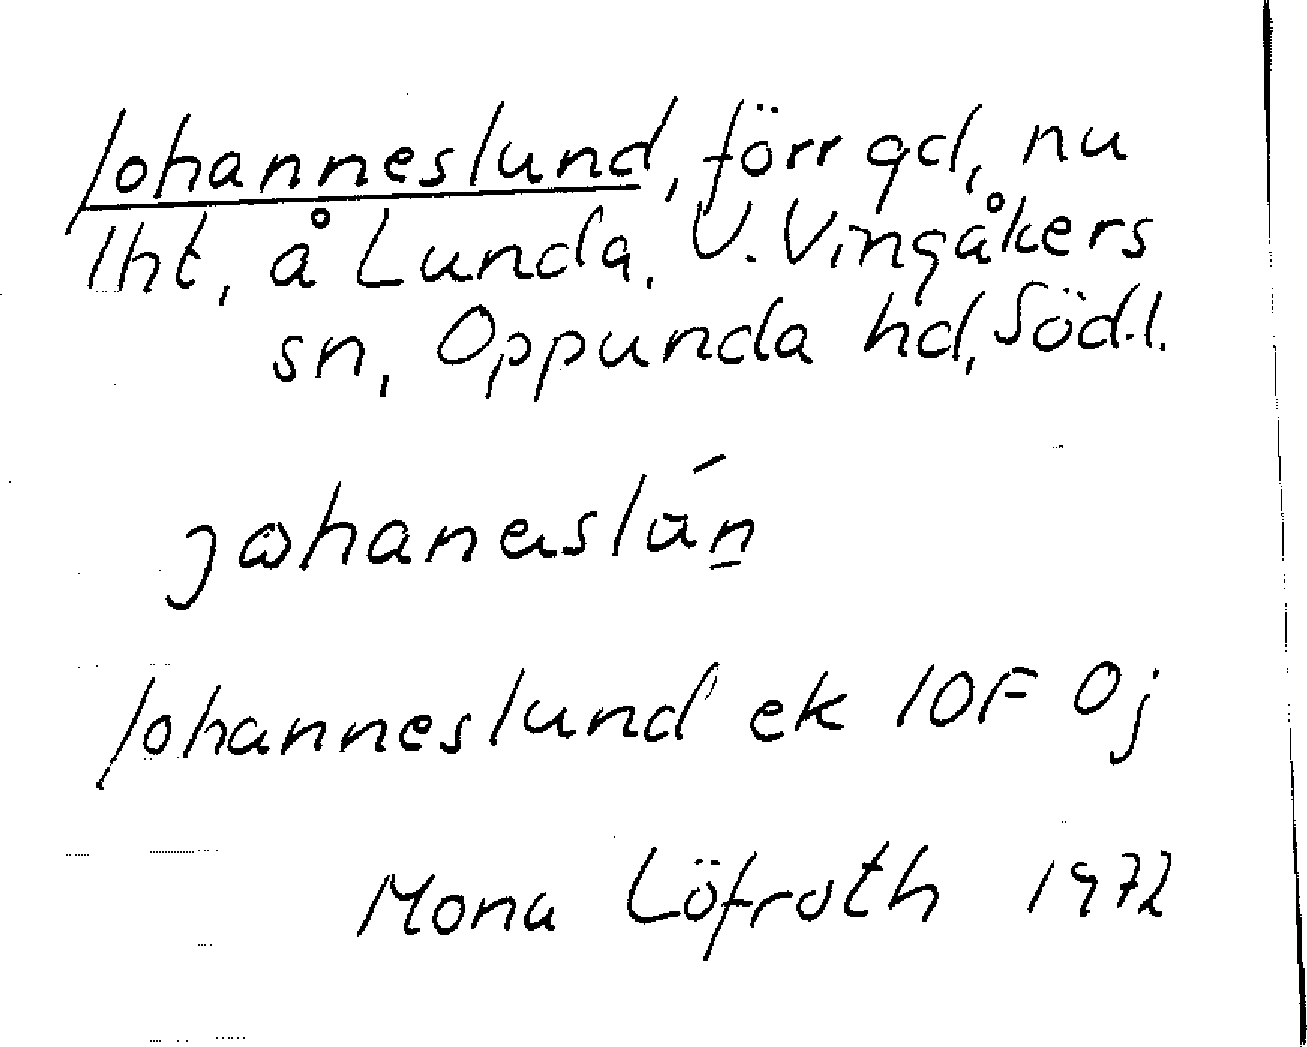 Johanneslund, förr gd, nu
lht, å Lunda, V. Vingåkers
sn, Oppunda hd, Söd.l.
Johanneslund ek 10F 0j
Mona Löfroth 1972